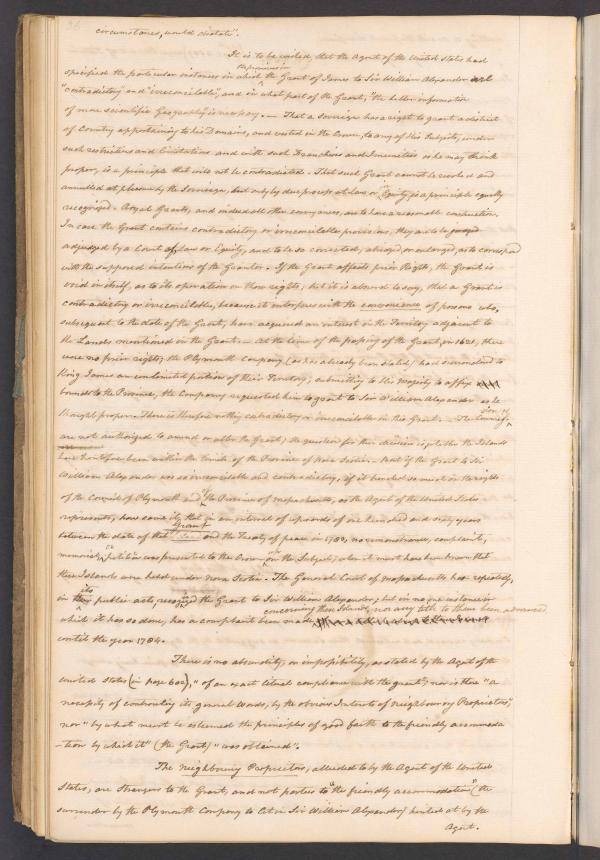 circumstances, would dictate".
It is to be wished, that the Agent of the United States had
specified the particular instances in which the provisions in the Grant of James to Sir William Alexander are
"contradictory and "irreconcilable", and in what part of the Grant, "the better information
of more scientific Geography" is necessary. — That a Sovereign has a right to grant a district
of Country appertaining to his Domains, and vested in the Crown, to any of his Subjects, under
such restrictions and limitations and with such Franchises and Immunities as he may think
proper, is a principle that will not be contradicted. That such Grant cannot be revoked and
annulled at pleasure by the Sovereign, but only by due process at Law or in Equity, is a principle equally
recognised. Royal Grants, and indeed all other conveyances, are to have a reasonable construction.
In case the Grant contains contradictory or irreconcilable provisions, they are to be
adjudged by a Court of Law or Equity, and to be so corrected, abridged or enlarged, as to correspond
with the supposed intentions of the Grantor. If the Grant affects prior Rights, the Grant is
void in itself, as to its operation on those rights; but it is absurd to say, that a Grant is
contradictory or irreconcilable, because it interferes with the convenience of persons who,
subsequent to the date of the Grant, have acquired an interest in the Territory adjacent to
the Lands mentioned in the Grant. — At the time of the passing of the Grant, in 1621, there
were no prior rights; the Plymouth Company (as has already been stated) had surrendered to
King James an unlimited portion of their Territory, submitting to His Majesty to affix
bounds to the Province, the Company requested him to grant to Sir William Alexander as he
thought proper. There is therefore nothing contradictory or irreconcilable in this Grant. — The Commissioners
are not authorized to amend or alter the Grant; the question for their decision is whether the Islands
have heretofore been within the limits of the Province of Nova Scotia. — But if the Grant to Sir
William Alexander was so irreconcilable and contradictory, if it bounded so much on the rights
of the Council of Plymouth and of the Province of Massachusetts, as the Agent of the United States
represents, how came it, that in an interval of upwards of one hundred and sixty years
between the date of that Grant and the Treaty of peace in 1783, no remonstrance, complaint,
memorial, or petition was presented to the Crown, on the Subject, when it must have been known that
these Islands were held under Nova Scotia. The General Court of Massachusetts has repeatedly,
in its public acts, recognized the Grant to Sir William Alexander, but in no one instance in
which it has so done, has a complaint been made concerning these Islands, nor any title to them been advanced
until the year 1784.
There is no absurdity, or impossibility, as stated by the Agent of the
United States (in page 602), "of an exact literal compliance with the grant"; nor is there "a
necessity of controuling its general words, by the obvious Intents of neighbouring Proprietors,"
nor "by what must be esteemed the principles of good faith to the friendly accommoda
-tion by which it" (the Grant) "was obtained".
The neighbouring Proprietors, alluded to by the Agent of the United
States, are Strangers to the Grant, and not parties to "the friendly accommodation" (the
surrender by the Plymouth Company to Sir William Alexander) hinted at by the
Agent.